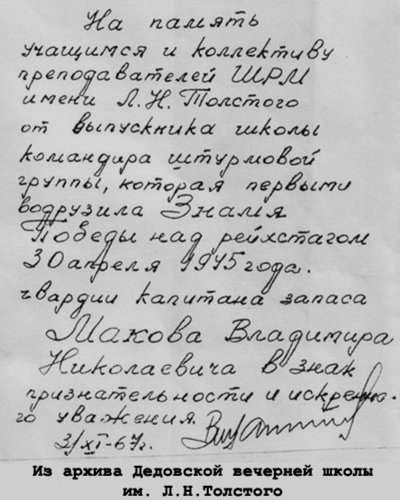 На память
учащимся и коллективу
преподавателей ШРМ
имени Л.Н.Толстого
от выпускника школы
командира штурмовой
группы, которая первыми
водрузила Знамя
Победы над рейхстагом
30 апреля 1945 года.
гвардии капитана запаса
Макова Владимира
Николаевича в знак
признательности и искренне-
го уважения.
3/XI-67г.
Из архива Дедовской вечерней школы
им. Л.Н.Толстого